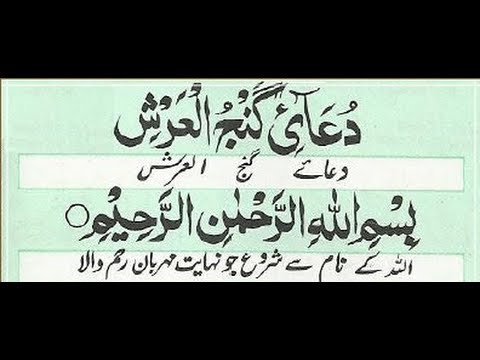 دُعَآئِ گَنْجُ الْعَرْشِ
دعائے گنج العرش
بِسْمِ اللهِ الرَّحْمٰنِ الرَّحِيْمِ○
اللہ کے نام سے شروع جو نہایت مہربان رحم والا